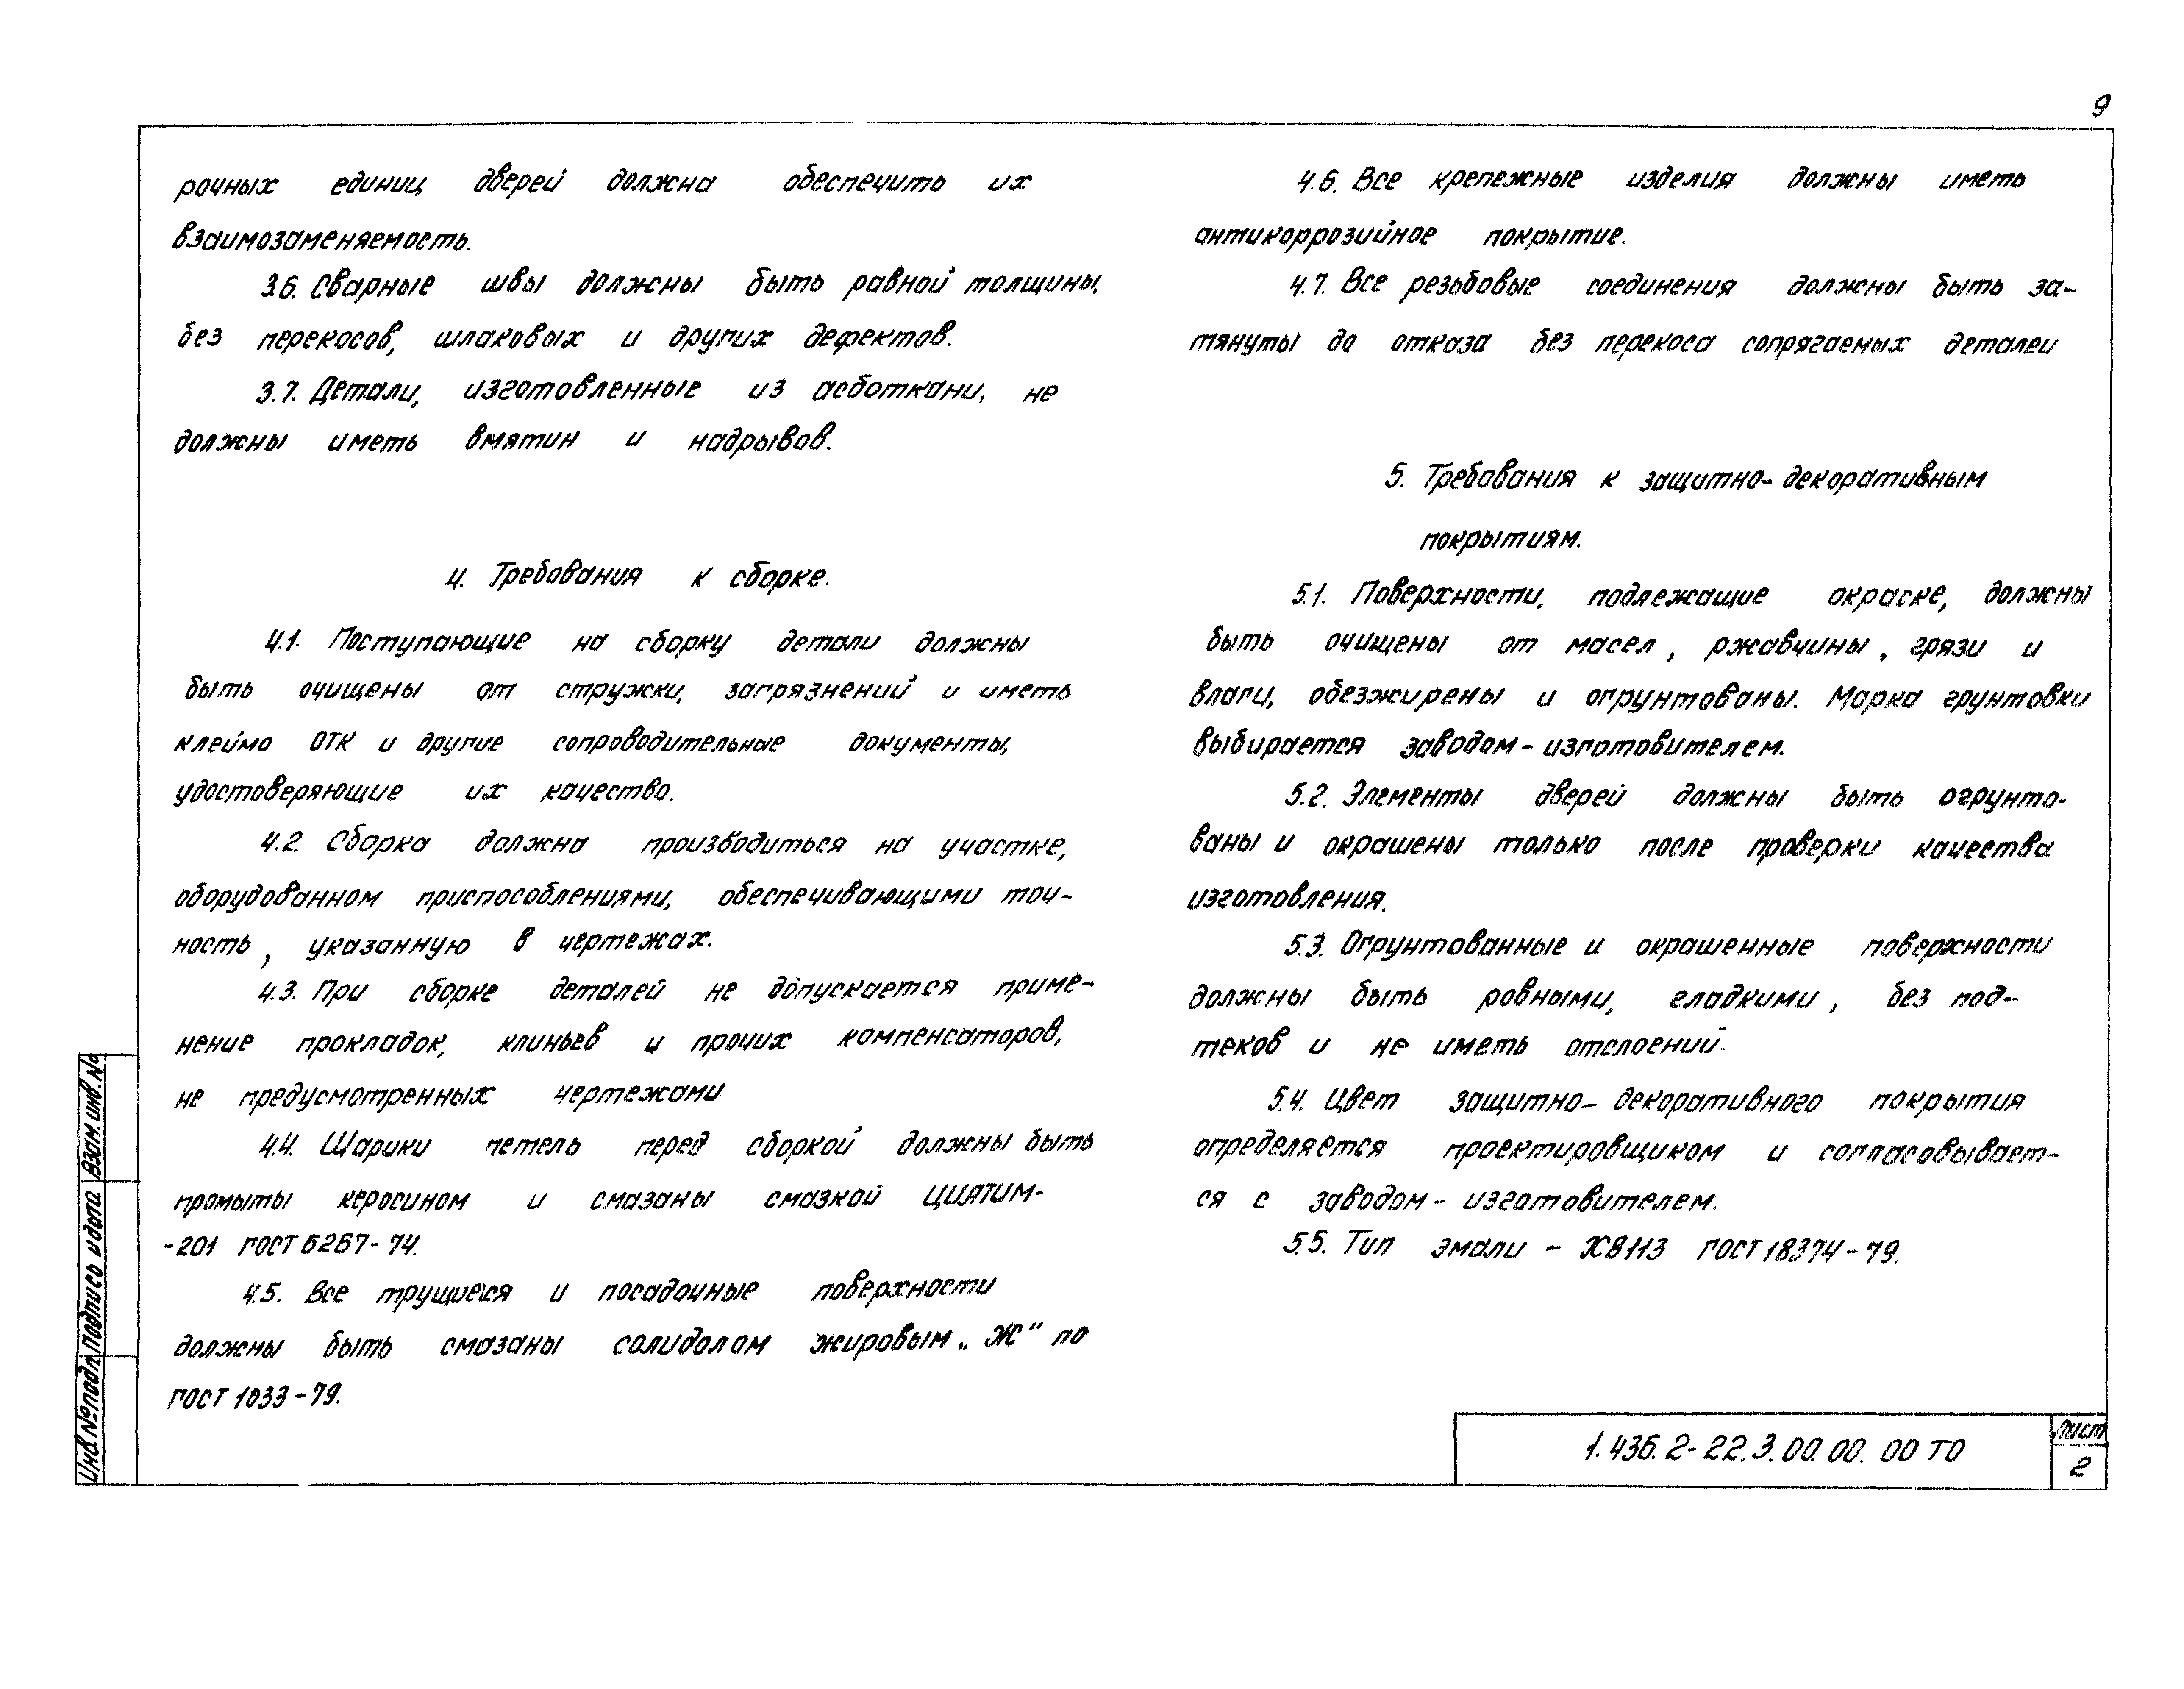 9
рочных единиц дверей должна обеспечить их
взаимозаменяемость.
3.6. Сварные швы должны быть равной толщины,
без перекосов, шлаковых и других дефектов.
3.7. Детали, изготовленные из асботкани, не
должны иметь вмятин и надрывов.
4. Требования к сборке.
4.1. Поступающие на сборку детали должны
быть очищены от стружки, загрязнений и иметь
клеймо ОТК и другие сопроводительные документы,
удостоверяющие их качество.
4.2. Сборка должна производиться на участке,
оборудованном приспособлениями, обеспечивающими точ-
ность, указанную в чертежах.
4.3. При сборке деталей не допускается приме-
нение прокладок, клиньев и прочих компенсаторов,
не предусмотренных чертежами
4.4. Шарики петель перед сборкой должны быть
промыты керосином и смазаны смазкой ЦИЯТИМ-
-201 ГОСТ 6267-74.
4.5. Все трущиеся и посадочные поверхности
должны быть смазаны солидолом жировым „Ж“ по
ГОСТ 1033-79.
4.6. Все крепежные изделия должны иметь
антикоррозийное покрытие.
4.7. Все резьбовые соединения должны быть за-
тянуты до отказа без перекоса сопрягаемых деталей
5. Требования к защитно-декоративным
покрытиям.
5.1. Поверхности, подлежащие окраске, должны
быть очищены от масел, ржавчины, грязи и
влаги, обезжирены и огрунтованы. Марка грунтовки
выбирается заводом-изготовителем.
5.2. Элементы дверей должны быть огрунто-
ваны и окрашены только после проверки качества
изготовления.
5.3. Огрунтованные и окрашенные поверхности
должны быть ровными, гладкими, без под-
теков и не иметь отслоений.
5.4. Цвет защитно-декоративного покрытия
определяется проектировщиком и согласовывает-
ся с заводом-изготовителем.
5.5. Тип эмали - ХВ113 ГОСТ 18374-79.
1.436.2-22.3.00.00.00 ТО
Лист
2
Инв.№ подл.
Подпись и дата
Взам.инв.№